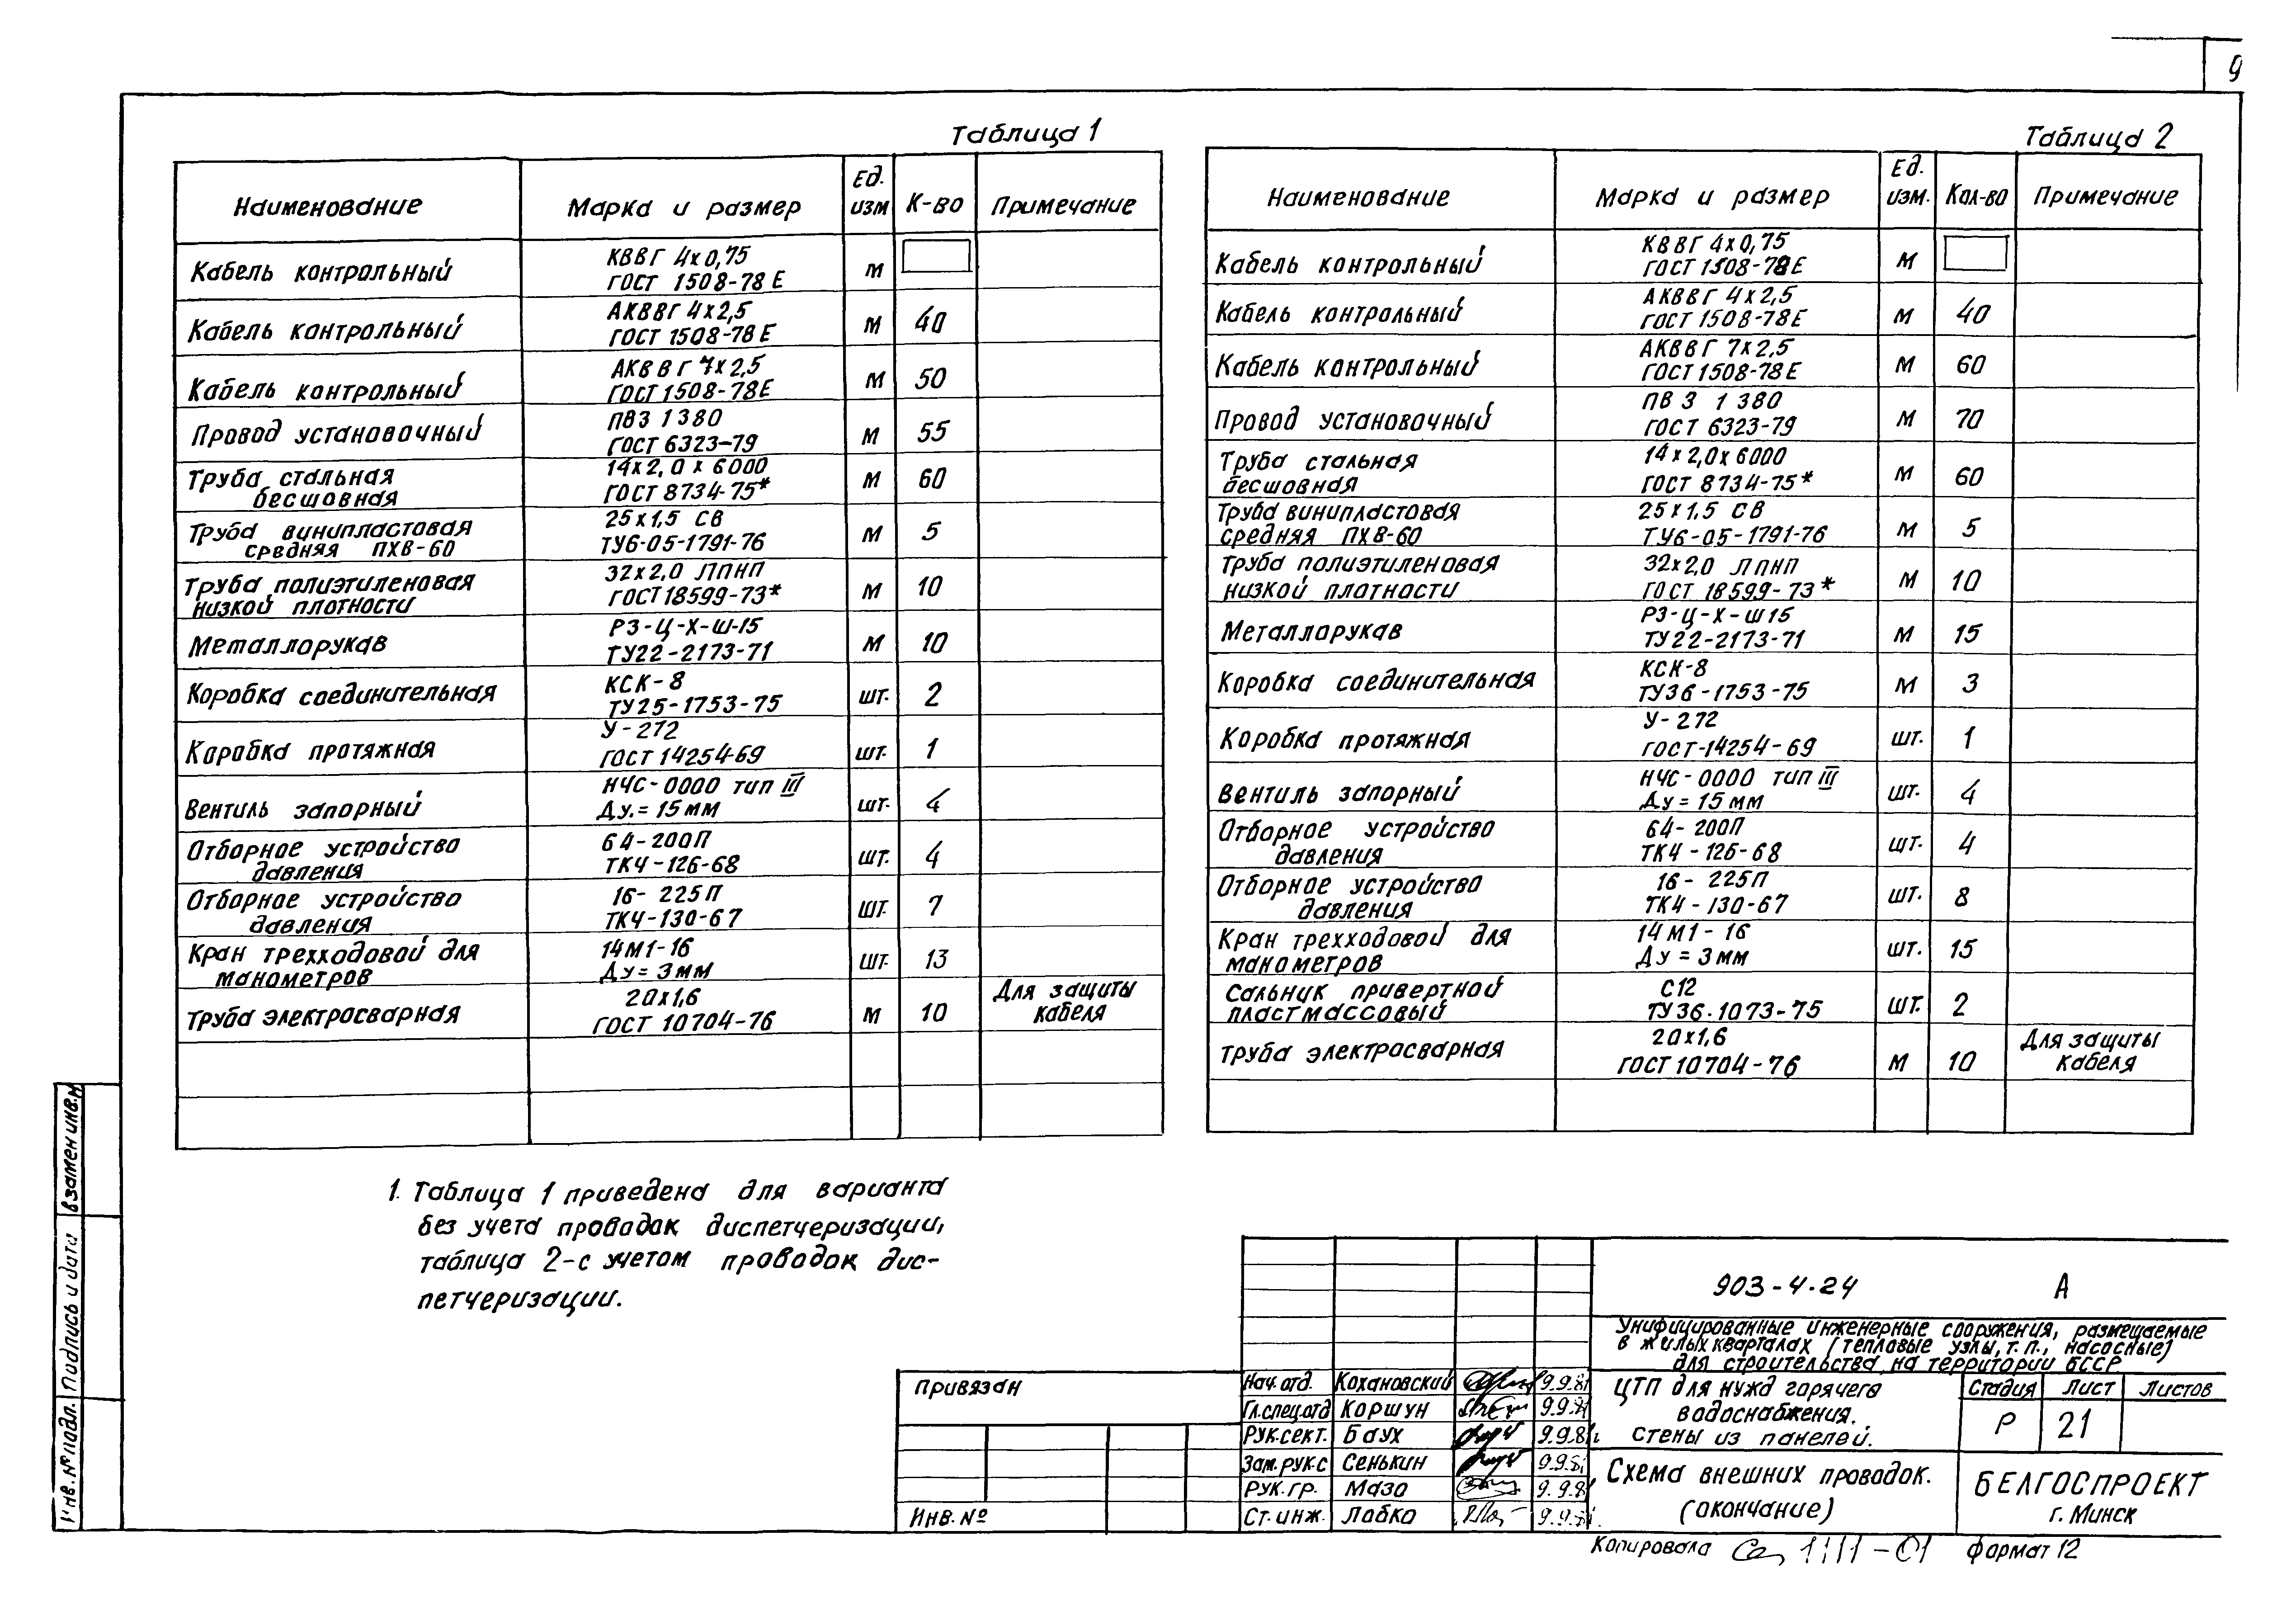 9
Таблица 1
Наименование Марка и размер Ед. изм К-во Примечание
Кабель контрольный КВВГ 4х0,75 м
ГОСТ 1508-78Е
Кабель контрольный АКВВГ 4х2,5 м 40
ГОСТ 1508-78Е
Кабель контрольный АКВВГ 7х2,5 м 50
ГОСТ 1508-78Е
Провод установочный ПВ3 1 380 м 55
ГОСТ 6323-79
Труба стальная 14х2,0х6000 м 60
бесшовная ГОСТ 8734-75*
Труба винипластовая 25х1,5 СВ м 5
средняя ПХВ-60 ТУ6-05-1791-76
Труба полиэтиленовая 32х2,0 ЛПНП м 10
низкой плотности ГОСТ 18599-73*
Металлорукав РЗ-Ц-Х-Ш-15 м 10
ТУ22-2173-71
Коробка соединительная КСК-8 шт. 2
ТУ25-1753-75
Коробка протяжная У-272 шт. 1
ГОСТ 14254-69
Вентиль запорный НЧС-0000 тип III шт. 4
Ду.=15мм
Отборное устройство 64-200П шт. 4
давления ТК4-126-68
Отборное устройство 16-225П шт. 7
давления ТК4-130-67
Кран трехходовой для 14М1-16 шт. 13
манометров Ду=3мм
Труба электросварная 20х1,6 м 10 Для защиты
ГОСТ 10704-76 кабеля
Таблица 2
Наименование Марка и размер Ед. изм. Кол-во Примечание
Кабель контрольный КВВГ 4х0,75 м
ГОСТ 1508-78Е
Кабель контрольный АКВВГ 4х2,5 м 40
ГОСТ 1508-78Е
Кабель контрольный АКВВГ 7х2,5 м 60
ГОСТ 1508-78Е
Провод установочный ПВ 3 1 380 м 70
ГОСТ 6323-79
Труба стальная 14х2,0х6000 м 60
бесшовная ГОСТ 8734-75*
Труба винипластовая 25х1,5 СВ м 5
средняя ПХВ-60 ТУ6-05-1791-76
Труба полиэтиленовая 32х2,0 ЛПНП м 10
низкой плотности ГОСТ 18599-73*
Металлорукав РЗ-Ц-Х-Ш15 м 15
ТУ22-2173-71
Коробка соединительная КСК-8 м 3
ТУ36-1753-75
Коробка протяжная У-272 шт. 1
ГОСТ-14254-69
Вентиль запорный НЧС-0000 тип III шт. 4
Ду=15мм
Отборное устройство 64-200П шт. 4
давления ТК4-126-68
Отборное устройство 16-225П шт. 8
давления ТК4-130-67
Кран трехходовой для 14М1-16 шт. 15
манометров Ду=3мм
Сальник привертной С12 шт. 2
пластмассовый ТУ36.1073-75
Труба электросварная 20х1,6 м 10 Для защиты
ГОСТ 10704-76 кабеля
1. Таблица 1 приведена для варианта
без учета проводок диспетчеризации,
таблица 2-с учетом проводок дис-
петчеризации.
Инв. № подл. Подпись и дата Взамен инв.№
903-4.24 А
Унифицированные инженерные сооружения, размещаемые
в жилых кварталах (тепловые узлы, т.п., насосные)
для строительства на территории БССР
Привязан
Инв. №
Нач. отд. Кохановский 9.9.81
Гл.спец.отд Коршун 9.9.81
Рук.сект. Баух 9.9.81
Зам. рук.с Сенькин 9.9.81
Рук. гр. Мазо 9.9.81
Ст. инж. Лабко 9.9.81
ЦТП для нужд горячего
водоснабжения.
Стены из панелей.
Стадия Лист Листов
Р 21
Схема внешних проводок.
(окончание)
БЕЛГОСПРОЕКТ
г. Минск
Копировала 1111-01 Формат 12